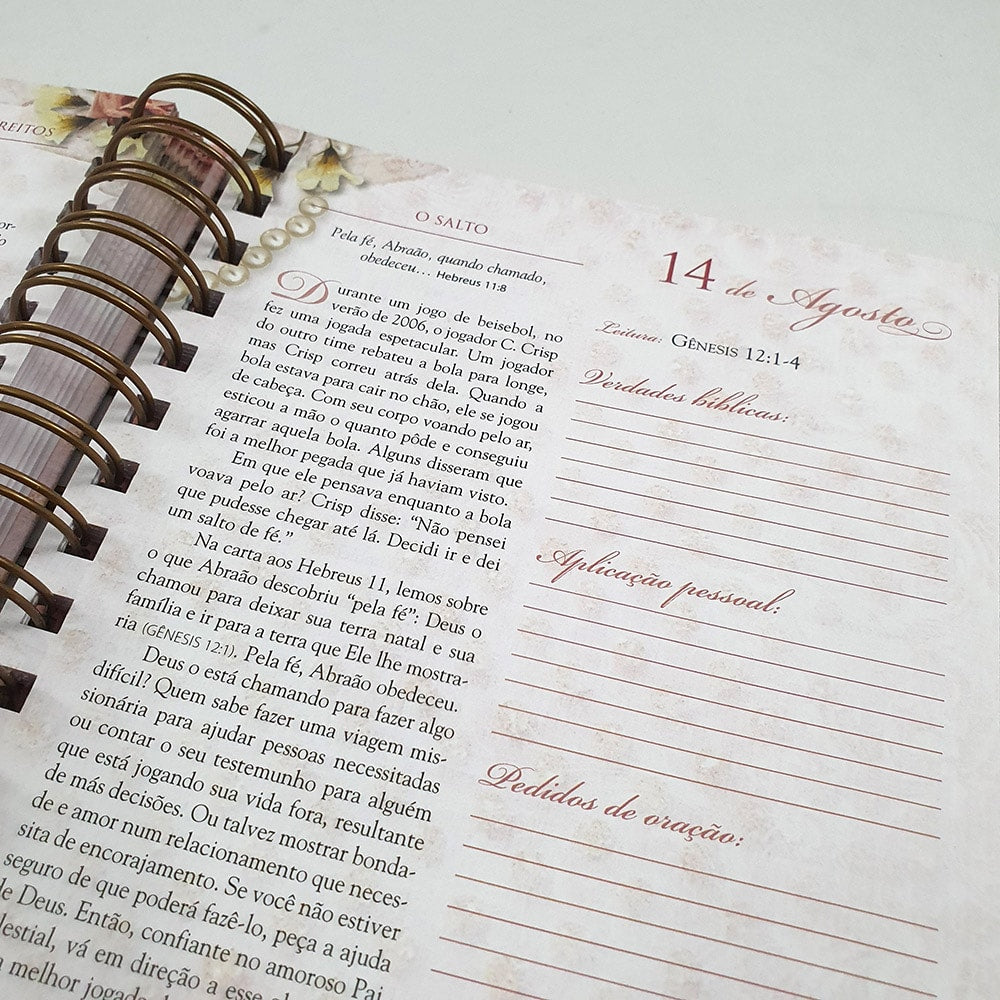 REITOS
O SALTO
Pela fé, Abraão, quando chamado,
obedeceu... Hebreus 11:8
Durante um jogo de beisebol, no
verão de 2006, o jogador C. Crisp
fez uma jogada espetacular. Um jogador
do outro time rebateu a bola para longe,
mas Crisp correu atrás dela. Quando a
bola estava para cair no chão, ele se jogou
de cabeça. Com seu corpo voando pelo ar,
esticou a mão o quanto pôde e conseguiu
agarrar aquela bola. Alguns disseram que
foi a melhor pegada que já haviam visto.
Em que ele pensava enquanto a bola
voava pelo ar? Crisp disse: “Não pensei
que pudesse chegar até lá. Decidi ir e dei
um salto de fé.”
Na carta aos Hebreus 11, lemos sobre
o que Abraão descobriu “pela fé”: Deus o
chamou para deixar sua terra natal e sua
família e ir para a terra que Ele lhe mostra-
ria (GÊNESIS 12:1). Pela fé, Abraão obedeceu.
Deus o está chamando para fazer algo
difícil? Quem sabe fazer uma viagem mis-
sionária para ajudar pessoas necessitadas
ou contar o seu testemunho para alguém
que está jogando sua vida fora, resultante
de más decisões. Ou talvez mostrar bonda-
de e amor num relacionamento que neces-
sita de encorajamento. Se você não estiver
seguro de que poderá fazê-lo, peça a ajuda
de Deus. Então, confiante no amoroso Pai
lestial, vá em direção a esse
melhor jogada
14 de Agosto
Leitura: GÊNESIS 12:1-4
Verdades bíblicas:
Aplicação pessoal:
Pedidos de oração: